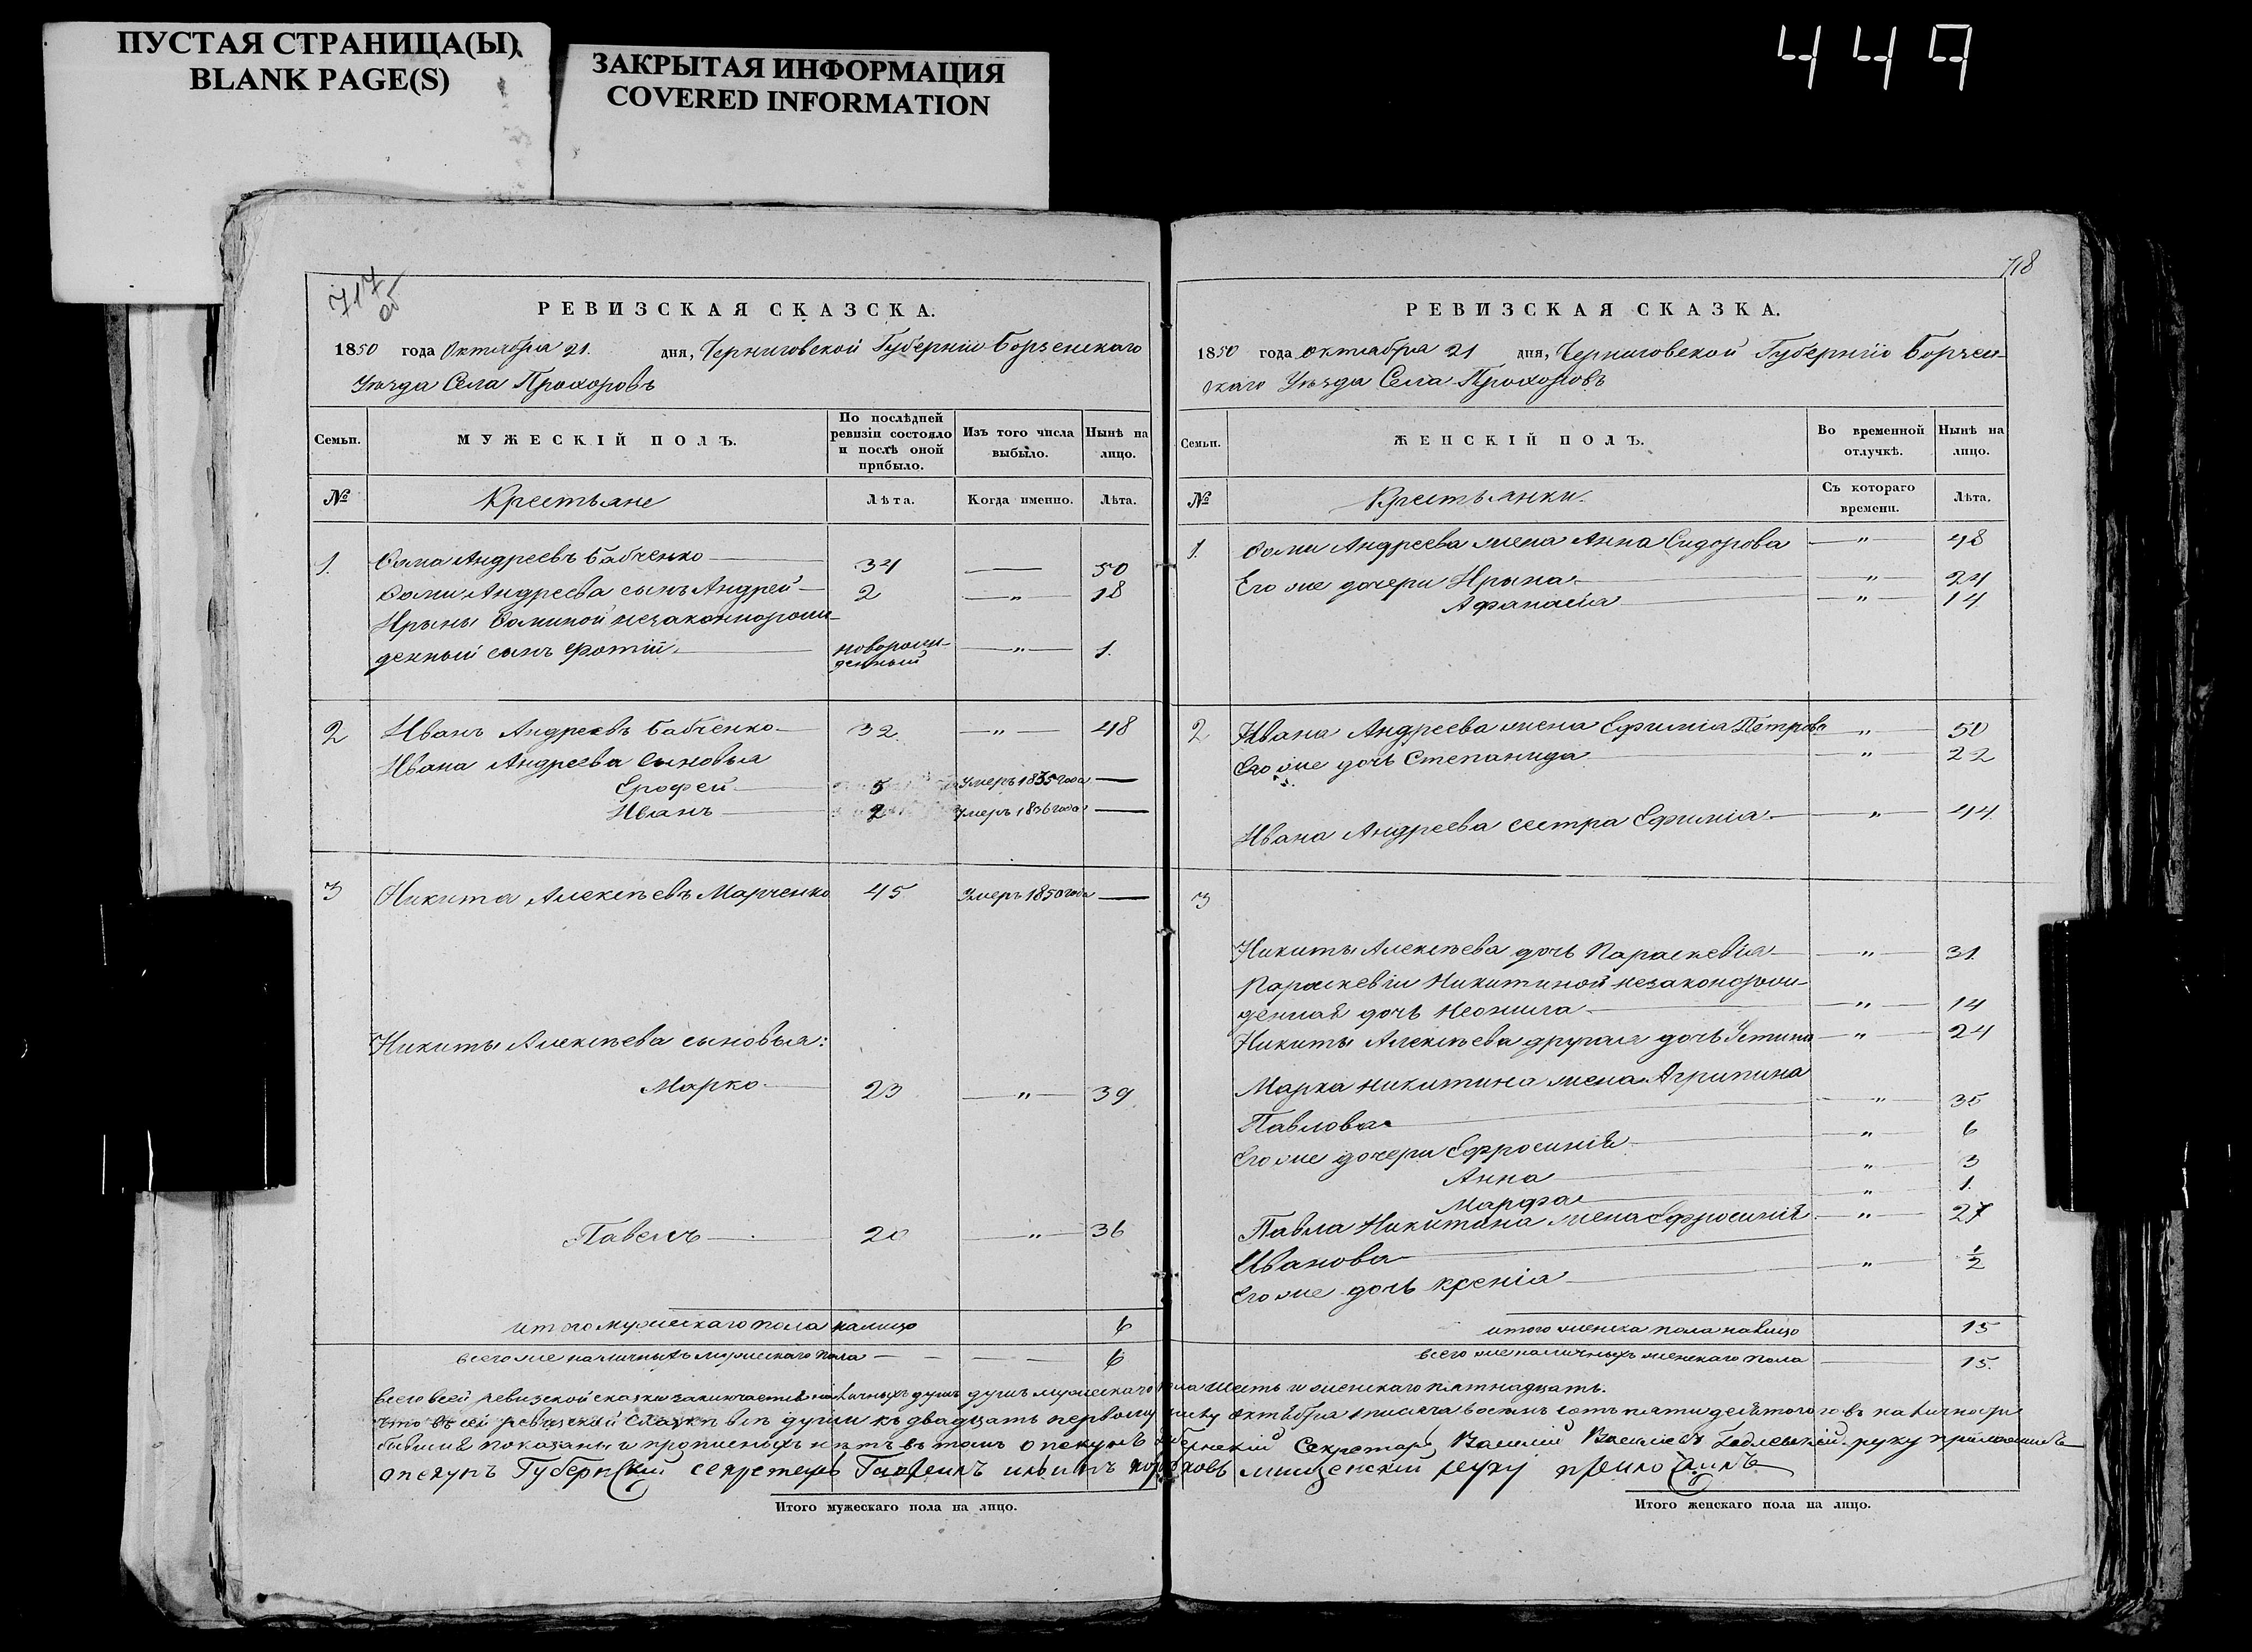 ПУСТАЯ СТРАНИЦА(Ы)
BLANK PAGE(S)
ЗАКРЫТАЯ ИНФОРМАЦИЯ
COVERED INFORMATION
449
717
об
РЕВИЗСКАЯ СКАЗСКА.
1850 года Октября 21. дня, Черниговской Губерніи Борзенскаго
Уѣзда Села Прохоровъ
Семьи.
МУЖЕСКІЙ ПОЛЪ.
По послѣдней ревизіи состояло и послѣ оной прибыло.
Изъ того числа выбыло.
Нынѣ на лицо.
№ Крестьяне Лѣта. Когда именно. Лѣта.
1. Фома Андреевъ Бабченко 34 — 50
Фомы Андреева сынъ Андрей 2 — " — 18
Ирины Фоминой незаконнорож-
денный сынъ Фотій новорож-денный — " — 1.
2 Иванъ Андреевъ Бабченко 32 — " — 48
Ивана Андреева сыновья
Ерофей 5 Умеръ 1835 года —
Иванъ 2 Умеръ 1836 года —
3 Никита Алексѣевъ Марченко 45 Умеръ 1850 года —
Никиты Алексѣева сыновья:
Марко 23 — " — 39
Павелъ 20 — " — 36
итого мужескаго пола налицо 6
всего же наличныхъ мужескаго пола 6
718
РЕВИЗСКАЯ СКАЗКА.
1850 года октября 21 дня, Черниговской Губерніи Борзен-
скаго Уѣзда Села Прохоровъ
Семьи.
ЖЕНСКІЙ ПОЛЪ.
Во временной отлучкѣ.
Нынѣ на лицо.
№ Крестьянки. Съ котораго времени. Лѣта.
1. Фомы Андреева жена Анна Сидорова — " — 48
Его же дочери Ирына — " — 24
Афанасія — " — 14
2 Ивана Андреева жена Ефимія Петрова — " — 50
Его же дочь Степанида — " — 22
Ивана Андреева сестра Ефимія — " — 44
3
Никиты Алексѣева дочь Параскевія — " — 31
Параскевіи Никитиной незаконорож-
денная дочь Неонила — " — 14
Никиты Алексѣева другая дочь Устина — " — 24
Марка Никитина жена Агрипина
Павлова — " — 35
Его же дочери Ефросинія — " — 6
Анна — " — 3
Марфа — " — 1.
Павла Никитина жена Ефросинія — " — 27
Иванова
Его же дочь Ксенія — " — 1/2
итого женска пола налицо 15
всего же наличныхъ женскаго пола 15.
всего всей ревизской сказки заключается наличныхъ душъ душъ мужескаго пола шесть и женскаго пятнадцать.
Что въ сей ревизской сказкѣ всѣ души къ двадцать первому числу октября тысяча восемь сотъ пятидесятого го въ наличности
бывшіе показаны и прописныхъ нѣтъ въ томъ опекунъ Губернскій Секретарь Василій Васильевъ руку приложилъ
опекунъ Губернский секретарь руку приложилъ
Итого мужескаго пола на лицо.
Итого женскаго пола на лицо.